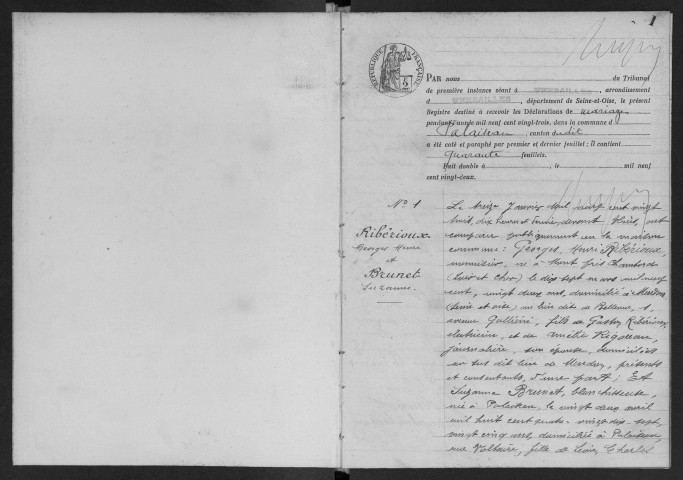 1
RÉPUBLIQUE FRANÇAISE
PAR nous du Tribunal
de première instance séant à VERSAILLES, arrondissement
d VERSAILLES, département de Seine-et-Oise, le présent
Registre destiné à recevoir les Déclarations de mariage
pendant l'année mil neuf cent vingt-trois, dans la commune d
Palaiseau, canton dudit
a été coté et paraphé par premier et dernier feuillet; il contient
Quarante feuillets.
Fait double à le mil neuf
cent vingt-deux.
N° 1
Ribérioux
Georges Henri
et
Brunet
Suzanne
Le treize Janvier mil neuf cent vingt
trois, dix heures et trente, devant Nous, ont
comparu publiquement en la maison
commune: Georges, Henri Ribérioux,
menuisier, né à Mont près Chambord
(Loir et Cher) le dix sept mars mil neuf
cent, vingt deux ans, domicilié à Meudon
(Seine et Oise) au lieu dit de Bellevue, 1,
avenue Galliéni, fils de Gaston Ribérioux,
électricien, et de Amélie Rigoreau,
journalière, son épouse, domiciliés
au sus dit lieu de Meudon, présents
et consentants, d'une part; Et
Suzanne Brunet, blanchisseuse,
née à Palaiseau, le vingt deux avril
mil huit cent quatre-vingt-dix-sept,
vingt cinq ans, domiciliée à Palaiseau,
rue Voltaire, fille de Léon, Charles